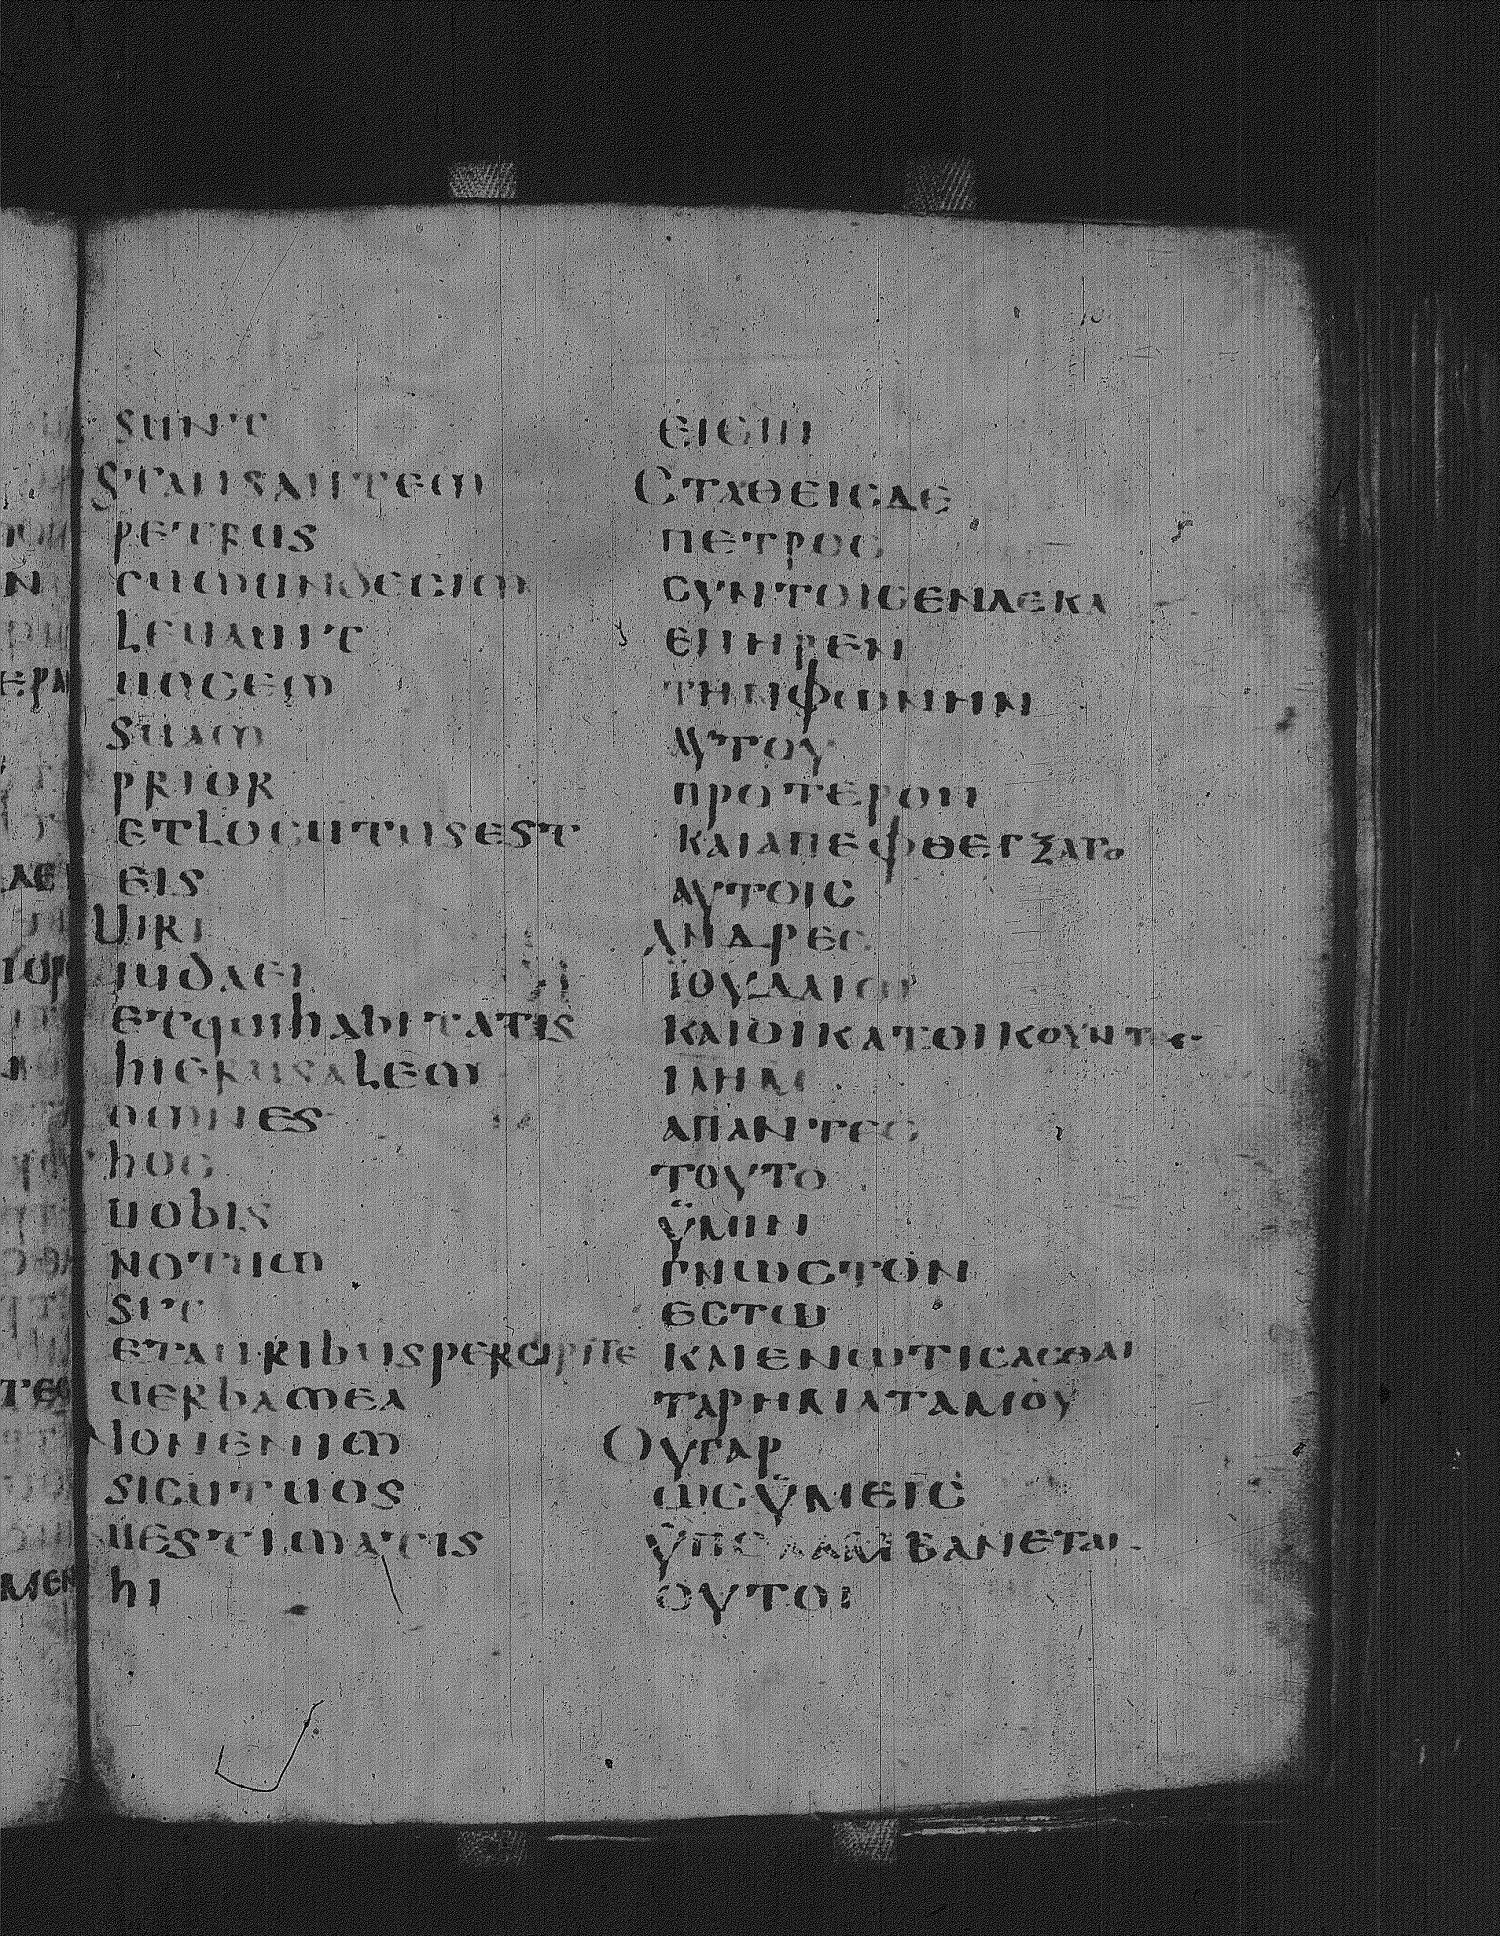 SUNT
STANSAUTEM
PETRUS
CUMUNDECIM
LEUAUIT
UOCEM
SUAM
PRIOR
ETLOCUTUSEST
EIS
UIRI
IUDAEI
ETQUIHABITATIS
HIERUSALEM
OMNES
HOC
UOBIS
NOTUM
SIT
ETAURIBUSPERCIPITE
UERBAMEA
NONENIM
SICUTUOS
UESTIMATIS
HI
ΕΙϹΙΝ
ϹΤΑΘΕΙϹΔΕ
ΠΕΤΡΟϹ
ϹΥΝΤΟΙϹΕΝΔΕΚΑ
ΕΠΗΡΕΝ
ΤΗΝΦΩΝΗΝ
ΑΥΤΟΥ
ΠΡΟΤΕΡΟΝ
ΚΑΙΑΠΕΦΘΕΓΞΑΤΟ
ΑΥΤΟΙϹ
ΑΝΔΡΕϹ
ΪΟΥΔΑΙΟΙ
ΚΑΙΟΙΚΑΤΟΙΚΟΥΝΤΕϹ
ΙΛΗΜ
ΑΠΑΝΤΕϹ
ΤΟΥΤΟ
ΫΜΙΝ
ΓΝΩϹΤΟΝ
ΕϹΤΩ
ΚΑΙΕΝΩΤΙϹΑϹΘΑΙ
ΤΑΡΗΜΑΤΑΜΟΥ
ΟΥΓΑΡ
ΩϹΫΜΕΙϹ
ΫΠΟΛΑΜΒΑΝΕΤΑΙ
ΟΥΤΟΙ